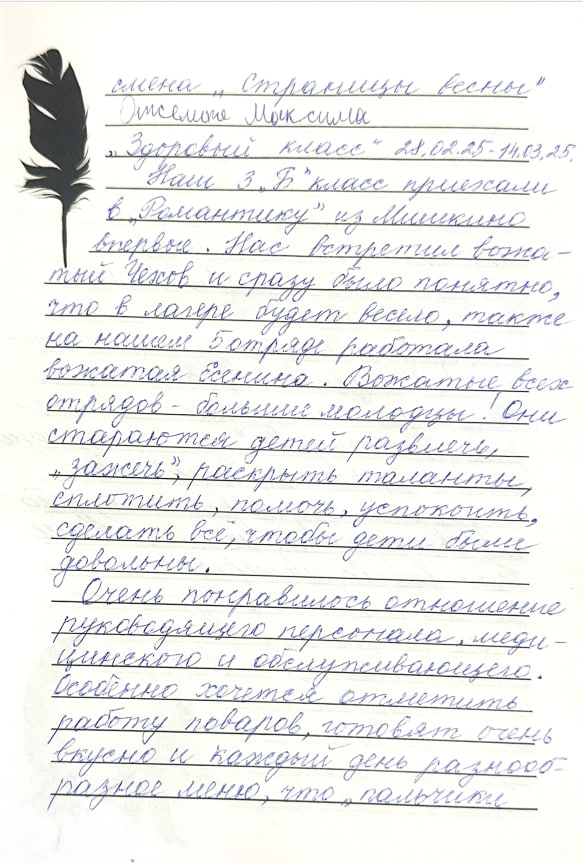 смена „Страницы весны"
Максима
„Здоровый класс" 28.02.25-14.03.25.
Наш 3 „Б" класс приехали
в „Романтику" из Мишкино
впервые. Нас встретил вожа-
тый Чехов и сразу было понятно,
что в лагере будет весело, также
на нашем 5 отряде работала
вожатая Есенина. Вожатые всех
отрядов - большие молодцы! Они
стараются детей развлечь,
„зажечь", раскрыть таланты,
сплотить, помочь, успокоить,
сделать всё, чтобы дети были
довольны.
Очень понравилось отношение
руководящего персонала, меди-
цинского и обслуживающего.
Особенно хочется отметить
работу поваров, готовят очень
вкусно и каждый день разнооб-
разное меню, что „пальчики